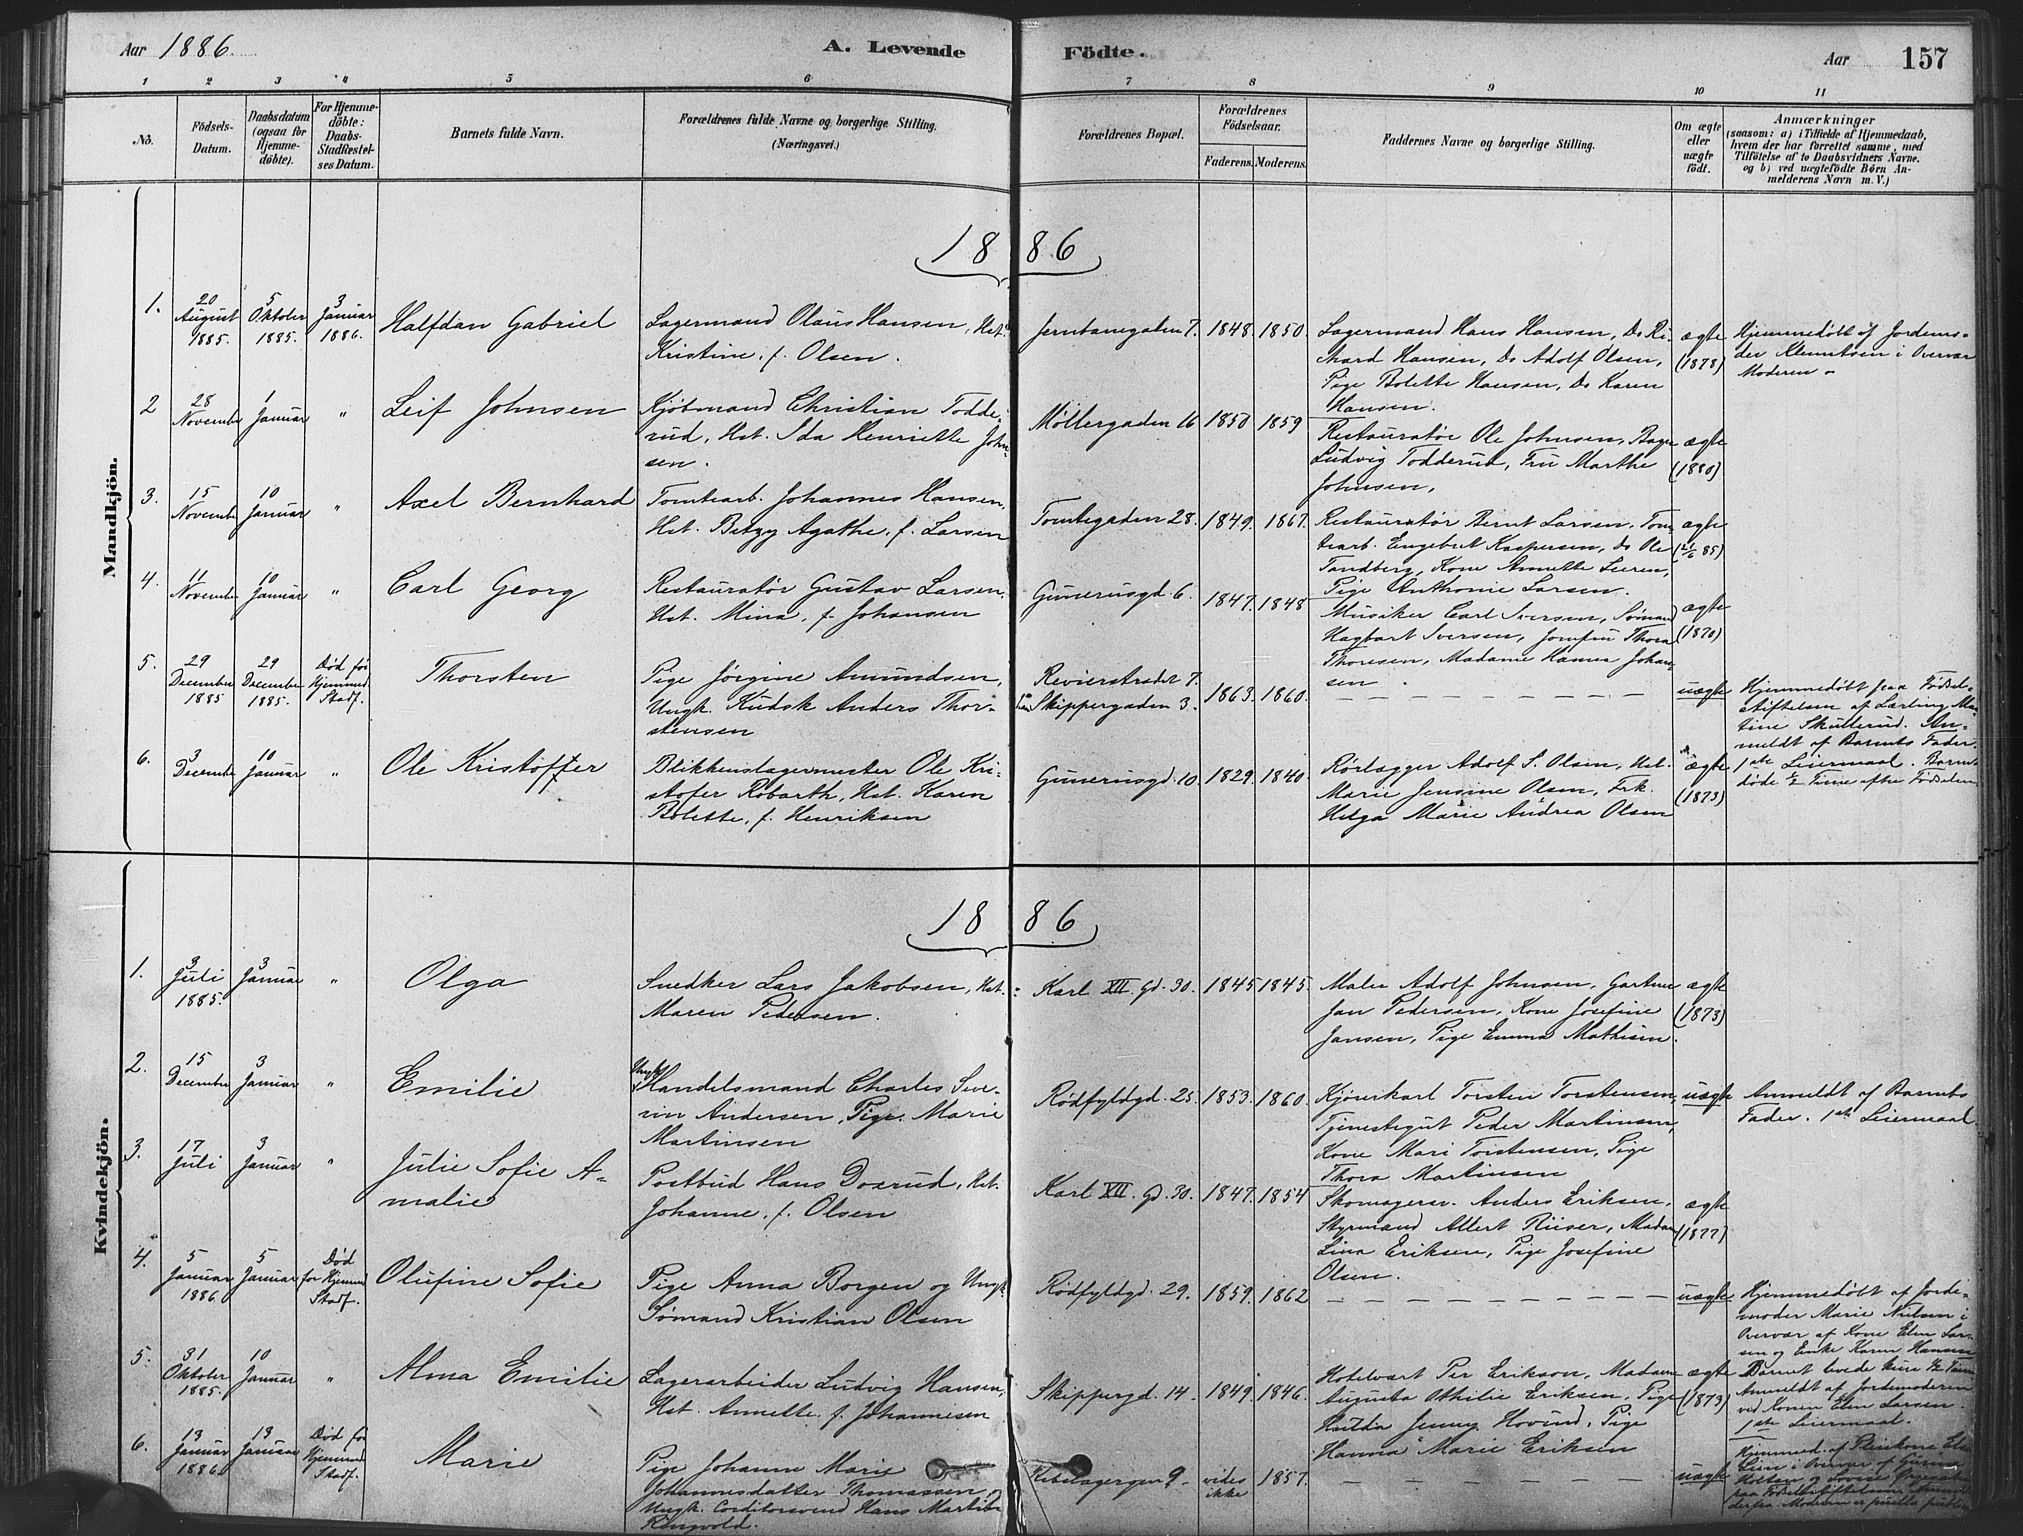 Aar 1886.
A. Levende Födte.
Aar 157
1 2 3 4 5 6 7 8 9 10 11
No.
Födsels-
Datum.
Daabsdatum
(ogsaa for
Hjemme-
döbte).
For Hjemme-
döbte:
Daabs-
Stadfæstel-
ses Datum.
Barnets fulde Navn.
Forældrenes fulde Navne og borgerlige Stilling.
(Næringsvei.)
Forældrenes Bopæl.
Forældrenes
Födselsaar.
Faderens. Moderens.
Faddernes Navne og borgerlige Stilling.
Om ægte
eller
uægte
födt.
Anmærkninger
(saasom: a) i Tilfælde af Hjemmedaab,
hvem der har forrettet samme, med
Tilföielse af to Daabsvidners Navne.
og b) ved uægtefödte Börn An-
melderens Navn m. V.)
Mandkjön.
1886
1.
20
August
1885.
5
Oktober
1885.
3
Januar
1886.
Halfdan Gabriel
Lagermand Olaus Hansen, Hst.
Kristine, f. Olsen.
Jernbanegaden 7. 1848. 1850.
Lagermand Hans Hansen, Ds Ri-
chard Hansen, Ds Adolf Olsen,
Pige Bolette Hansen, Ds Karen
Hansen.
ægte
(1878)
Hjemmedøbt af Jordemo-
der Klemetsen i Overvær
Moderen
2
28
November
1
Januar
"
Leif Johnsen
Kjøbmand Christian Todde-
rud, Hst. Ida Henriette John-
sen.
Møllergaden 16 1850 1859
Restauratør Ole Johnsen, Bager
Ludvig Todderud, Fru Marthe
Johnsen,
ægte
(1880)
3.
15
November
10
Januar
"
Axel Bernhard
Tomtearb. Johannes Hansen,
Hst. Betzy Agathe, f. Larsen
Tomtegaden 28. 1849. 1867.
Restauratør Bernt Larsen, Tom-
tearb. Engebret Kaspersen, Ds Ole
Tandberg, Kone Annette Lieren,
Pige Anthonie Larsen.
ægte
4.
11
November
10
Januar
"
Carl Georg
Restauratør Gustav Larsen,
Hst. Mina, f. Johansen
Gunerusgd. 6. 1847. 1848
Musiker Carl Iversen, Sømand
Hagbart Iversen, Jomfru Thora
Thoresen, Madame Hanna Johan-
sen
ægte
(1870)
5.
29
December
1885
29
December
1885.
Død før
Hjemmed.
Stadf.
Thorsten
Pige Jørgine Amundsen,
Ungk. Kudsk Anders Thor-
stensen
Revierstrædet 7.
Skippergaden 3. 1863. 1860.
uægte
Hjemmedøbt paa Fødsels-
stiftelsen af Lærling Mar-
tine Skullerud. An-
meldt af Barnets Fader.
1ste Leiermaal. Barnet
døde ½ Time efter Fødselen
6.
3
December
10
Januar
"
Ole Kristoffer
Blikkenslagermester Ole Kri-
stofer Robarth, Hst. Karen
Bolette, f. Henriksen
Gunerusgd. 10. 1829. 1840.
Rørlægger Adolf S. Olsen, Hst.
Marie Jensine Olsen, Frk.
Helga Marie Andrea Olsen
ægte
(1873)
Kvindekjön.
1886
1.
3
Juli
1885.
3
Januar
"
Olga
Snedker Lars Jakobsen, Hst.
Maren Pedersen.
Karl XII. gd. 30. 1845 1845.
Maler Adolf Johnsen, Gartner
Jan Pedersen, Kone Josefine
Jansen, Pige Emma Mathisen.
ægte
(1873)
2.
15
December
3
Januar
"
Emilie
Ungk.
Handelsmand Charles Seve-
rin Andersen, Pige Marie
Martinsen
Rødfyldgd. 25. 1853. 1860.
Kjørerkarl Torsten Torstensen,
Tjenestegut Peder Martinsen,
Kone Mari Torstensen, Pige
Thora Martinsen
uægte
Anmeldt af Barnets
Fader. 1ste Leiermaal.
3.
17
Juli
3
Januar
"
Julie Sofie A-
malie
Postbud Hans Dosrud, Hst.
Johanne, f. Olsen
Karl XII. gd. 30. 1847. 1854
Skomagersv. Anders Eriksen,
Styrmand Albert Riiser, Madam
Lina Eriksen, Pige Josefine
Olsen.
ægte
(1877)
4.
5
Januar
1886.
5
Januar
Død
før Hjemmed
Stadf.
Olufine Sofie
Pige Anna Borgen og Ungk.
Sømand Kristian Olsen
Rødfyldgd. 29. 1859. 1862
uægte
Hjemmedøbt af Jorde-
moder Marie Nielsen i
Overvær af Kone Elen Lar-
sen og Enke Karen Hansen
Barnet levede kun ½ Time
Anmeldt af Jordemoderen
ved Konen Elen Larsen.
1ste Leiermaal.
5.
31
Oktober
1885.
10
Januar
"
Alma Emilie
Lagerarbeider Ludvig Hansen,
Hst. Annette, f. Johannesen
Skippergd. 14. 1849. 1846.
Hotelvært Per Erikson, Madame
Augusta Othilie Eriksen, Pige
Hulda Jenny Hovind, Pige
Hanna Marie Eriksen
ægte
(1873)
6.
13
Januar
1886.
13
Januar
Død før
Hjemmed
Stadf.
Marie
Pige Johanne Marie
Johannesdatter Thomassen,
Ungk. Conditorsvend Hans Martin
Ringvold.
9. vides
ikke 1857.
uægte
Hjemmed. af